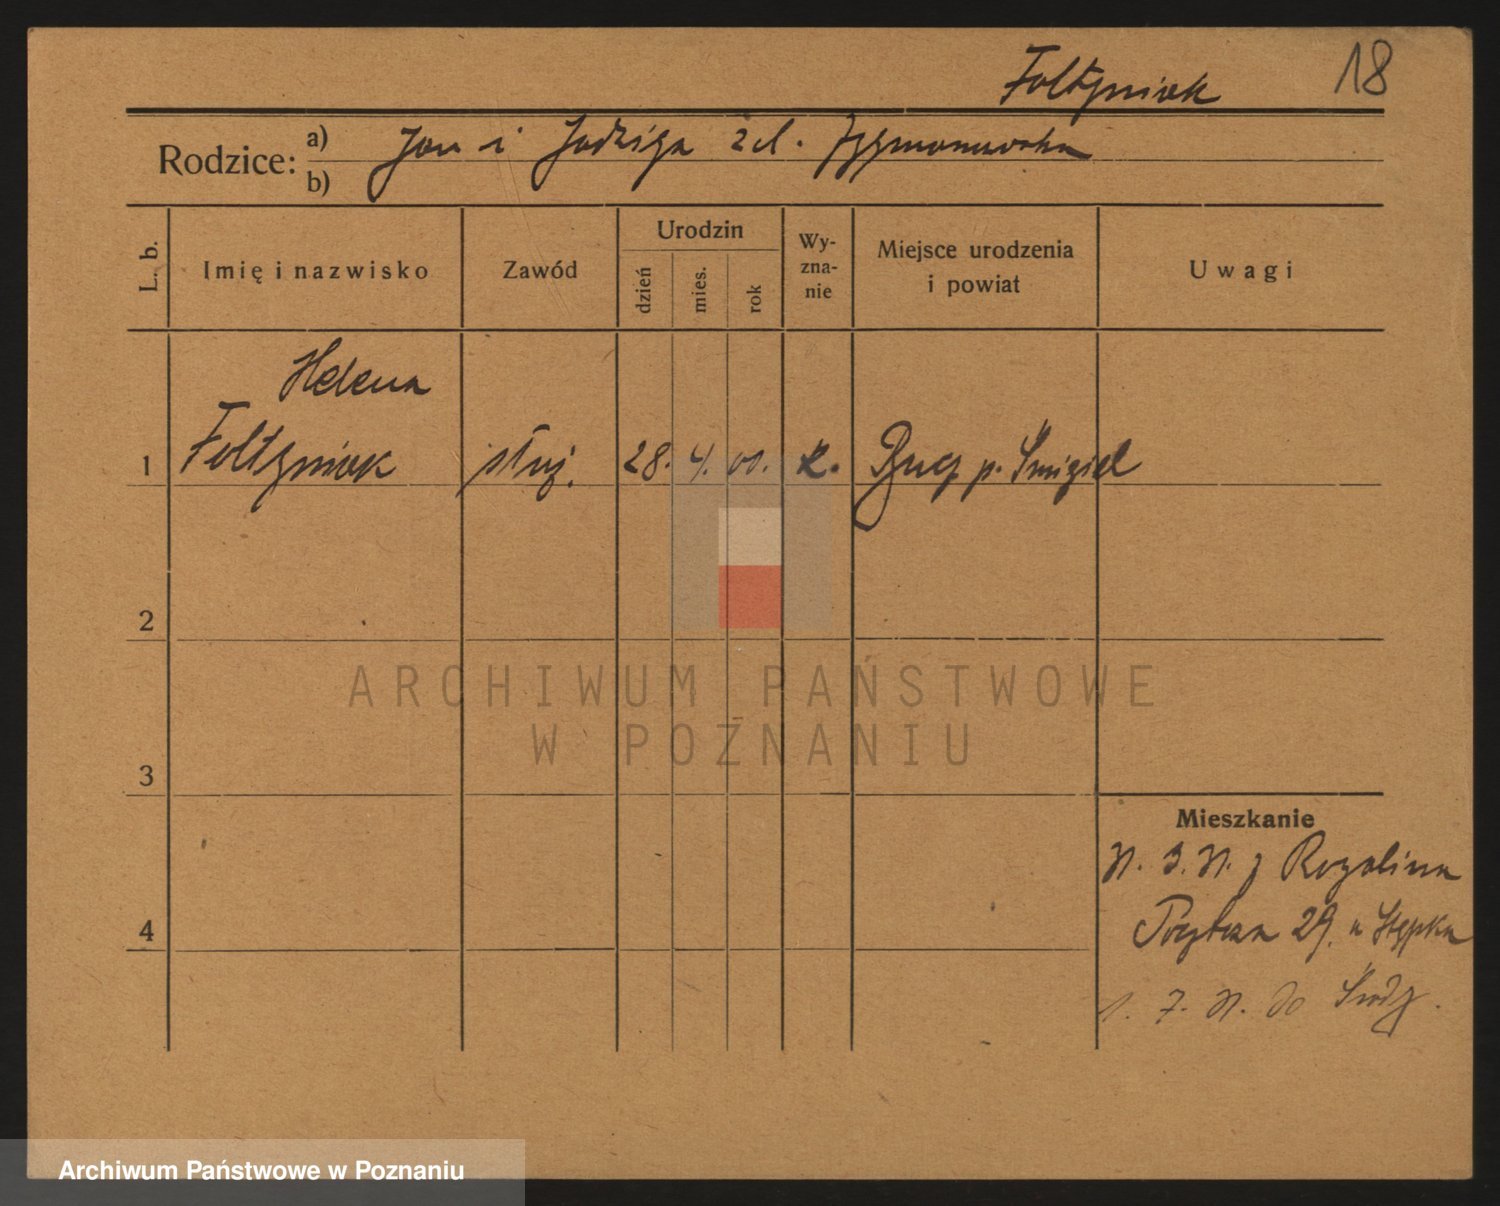 Fołtyniak 18
Rodzice: a) Jan i Jadwiga zd.
b)
L. b. Imię i nazwisko Zawód Urodzin dzień mies. rok Wy-zna-nie Miejsce urodzenia i powiat Uwagi
Helena
1 Fołtyniak służ. 28. 4. 00. k. p. Śmigiel
2
ARCHIWUM PAŃSTWOWE
W POZNANIU
3
Mieszkanie
Rozalina
4 29. u
1. 7. do Środy.
Archiwum Państwowe w Poznaniu